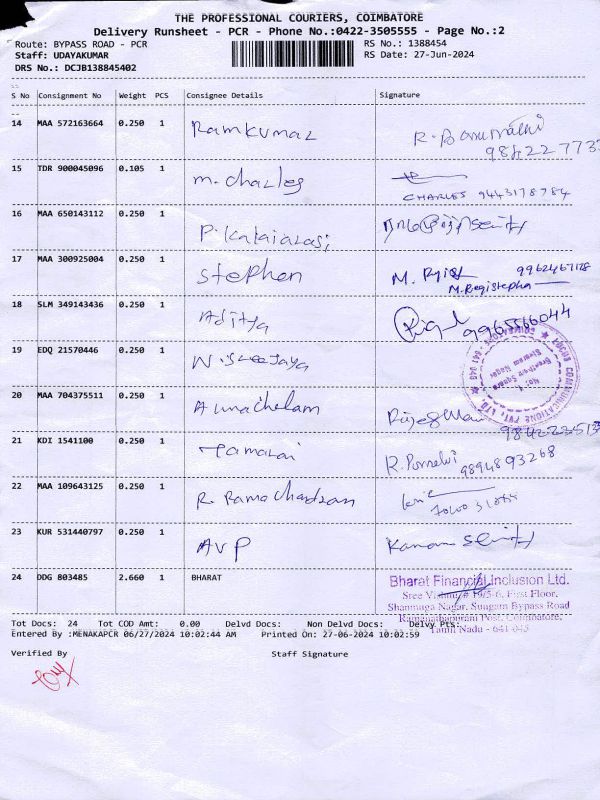 THE PROFESSIONAL COURIERS, COIMBATORE
Delivery Runsheet - PCR - Phone No.:0422-3505555 - Page No.:2
Route: BYPASS ROAD - PCR
RS No.: 1388454
Staff: UDAYAKUMAR
RS Date: 27-Jun-2024
DRS No.: DCJB138845402
S No Consignment No Weight PCS Consignee Details Signature
14 MAA 572163664 0.250 1 Ramkumar
15 TDR 900045096 0.105 1 M. Charles
CHARLES 9443178784
16 MAA 650143112 0.250 1 P. Kalaiarasi
17 MAA 300925004 0.250 1 Stephen 9962467128
M. Registepha
18 SLM 349143436 0.250 1 Aditya 9965566044
19 EDQ 21570446 0.250 1 N. Sreejaya
20 MAA 704375511 0.250 1 Arunachalam
21 KDI 1541100 0.250 1 Tamarai
9894893268
22 MAA 109643125 0.250 1 R. Ramachadran
23 KUR 531440797 0.250 1 AVP
24 DDG 803485 2.660 1 BHARAT
Bharat Financial Inclusion Ltd.
Sree Vishnu # 19/5-6, First Floor,
Shanmuga Nagar, Sungam Bypass Road
Ramanathapuram Post, Coimbatore,
Tamil Nadu - 641 045
Tot Docs: 24 Tot COD Amt: 0.00 Delvd Docs: Non Delvd Docs: Delvy Pts:
Entered By :MENAKAPCR 06/27/2024 10:02:44 AM Printed On: 27-06-2024 10:02:59
Verified By Staff Signature